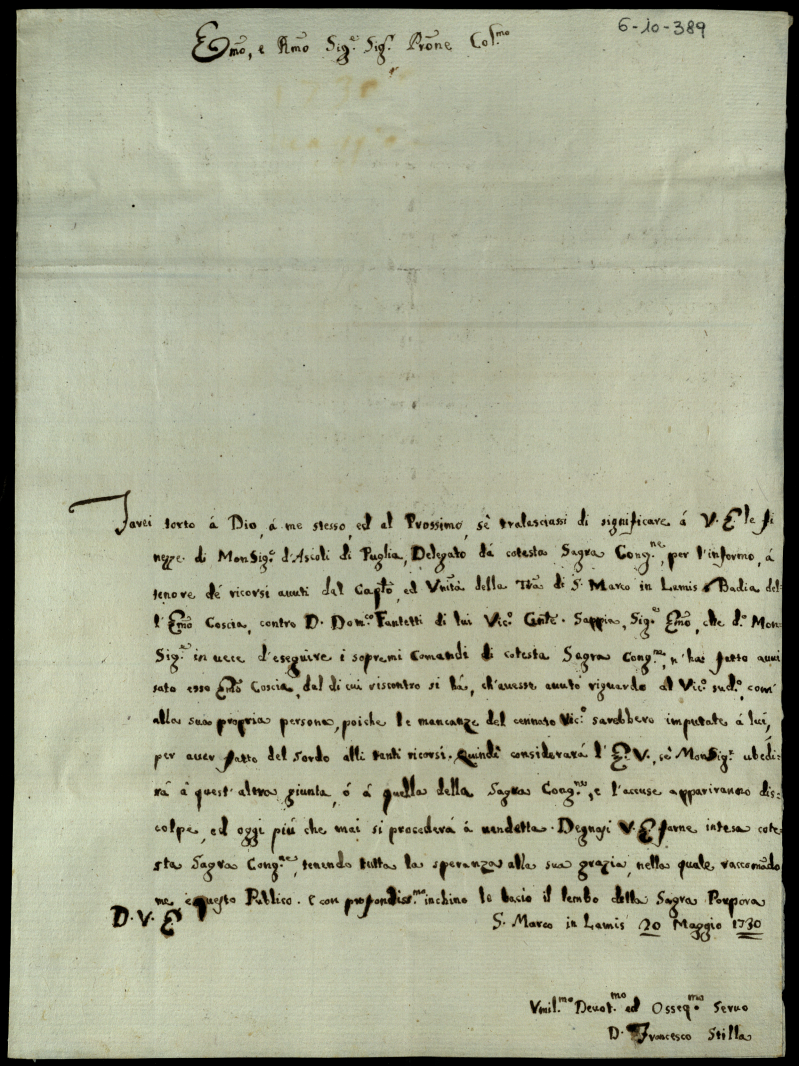 6-10-389
Emo, e Rmo Sigr. Sigr. Prõne Colmo
Farei torto á Dio, á me stesso, ed al Prossimo, sè tralasciassi di significare á V. E le fi
nezze di MonSigr. d'Ascoli di Puglia, Delegato dá cotesta Sagra Congne, per l'informo, á
tenore dé ricorsi avuti dal Capto, ed Vnitá della Tra di S. Marco in Lamis Badia del-
l'Emo Coscia, contro D. Domco. Fantetti di lui Vico. Gnte. Sappia, Sigre Emo, che do. Mon
Sigr. in vece d'eseguire i sopremi Comandi di cotesta Sagra Congne, n'há fatto avvi
sato esso Emo Coscia, dal di cui riscontro si há, ch'avesse avuto riguardo al Vico. sudo., com'
alla sua propria persona, poiche le mancanze del cennato Vico. sarebbero imputate á lui,
per aver fatto del sordo alli tanti ricorsi. Quindi considerará l'E. V., sè MonSigr. ubedi-
rá á quest'altra giunta, ó á quella della Sagra Congne, e l'accuse appariranno dis-
colpe, ed oggi piú che mai si procederá á vendetta. Degnasi V. E farne intesa cote
sta Sagra Congne, tenendo tutta la speranza alla sua grazia, nella quale raccomãdo
me é questo Publico. E con profondissmo inchino le bacio il lembo della Sagra Porpora
D. V. E
S. Marco in Lamis 20 Maggio 1730
Vmilmo Devotmo ed Osseqmo Servo
D. Francesco Stilla